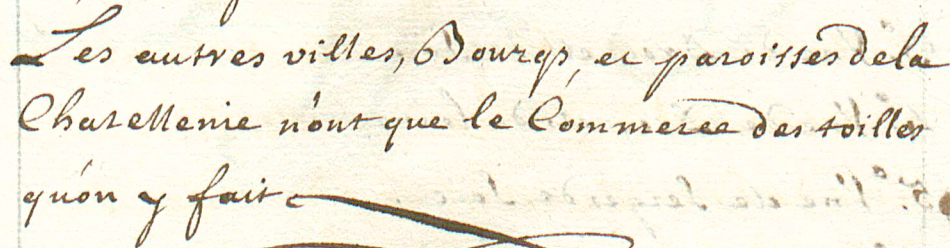 Les autres villes, Bourgs, et paroisses dela
Chatellenie n'ont que le Commerce des toilles
qu'on y fait